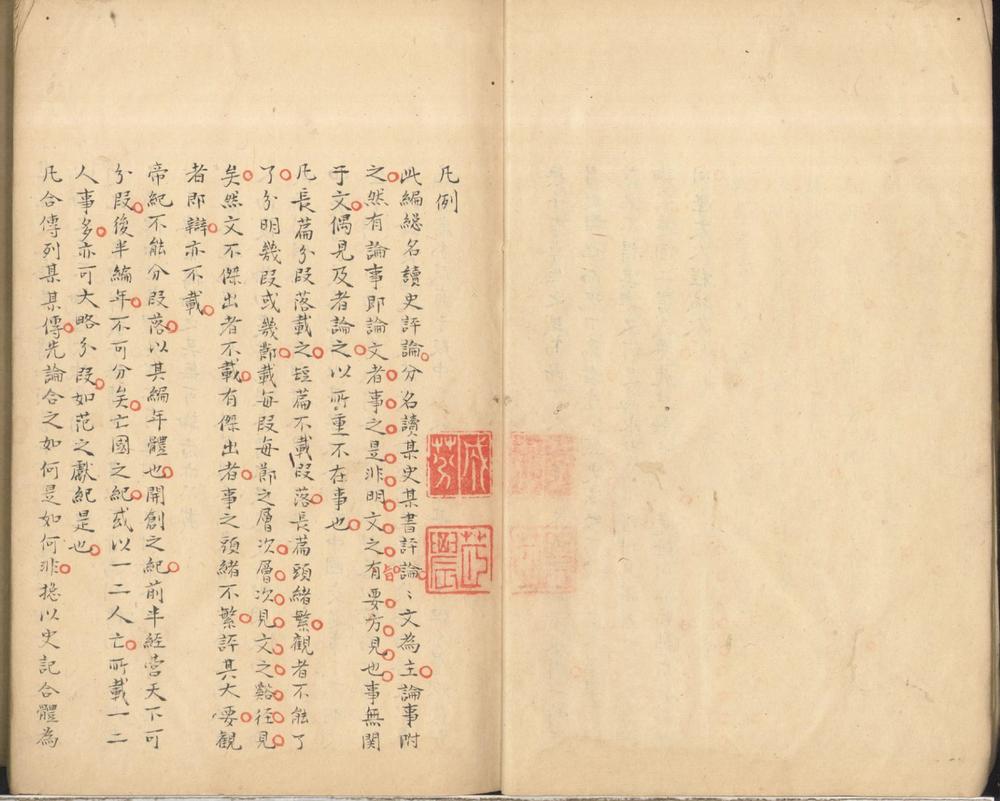 凡例
此編總名讀史評論分名讀某史某書評論〻文為主論事附
之然有論事即論文者事之是非明文之有要方見也事無關
于文偶見及者論之以所重不在事也
凡長篇分段落載之短篇不載段落長篇頭緒繁觀者不能了
了分明幾段或幾節載每段每節之層次層次見文之谿徑見
矣然文不傑出者不載有傑出者事之頭緒不繁評其大要觀
者即辯亦不載
帝紀不能分段落以其編年體也開創之紀前半經營天下可
分段後半編年不可分矣亡國之紀或以一二人亡所載一二
人事多亦可大略分段如范之獻紀是也
凡合傳列某某傳先論合之如何是如何非總以史記合體為
皆